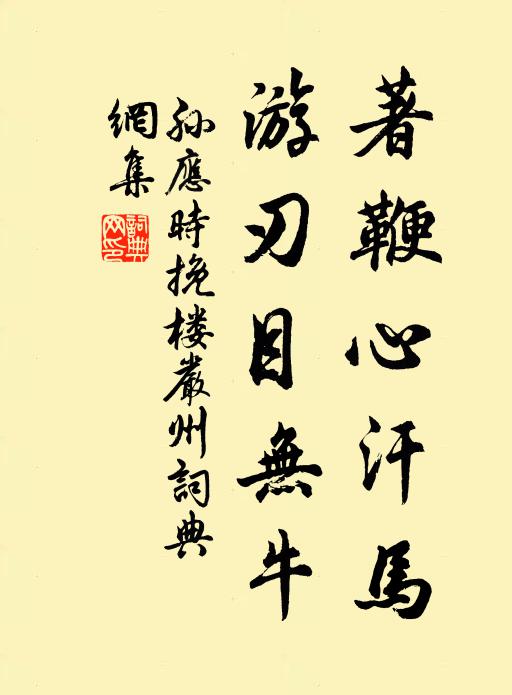 著鞭心汗馬
游刃目無牛
孙應時挽楼嚴州詞典
網集
詞典
网印